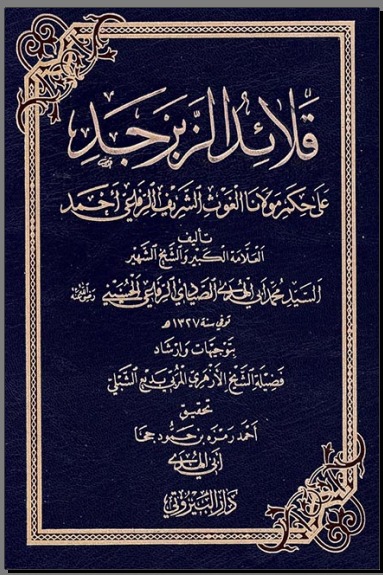 قلائد الزبرجد
على حكم مولانا الغوث الشريف الرفاعي أحمد
تأليف
العلامة الكبير والشيخ الشهير
السيد محمد أبي الهدى الصيادي الرفاعي الحسيني رضي الله عنه
توفي سنة ١٣٢٧هـ
بتوجيهات وإرشاد
فضيلة الشيخ الأزهري المربي بديع الشبلي
تحقيق
أحمد رمزه بن حمود جحا
أبي الهدى
دار البيروتي